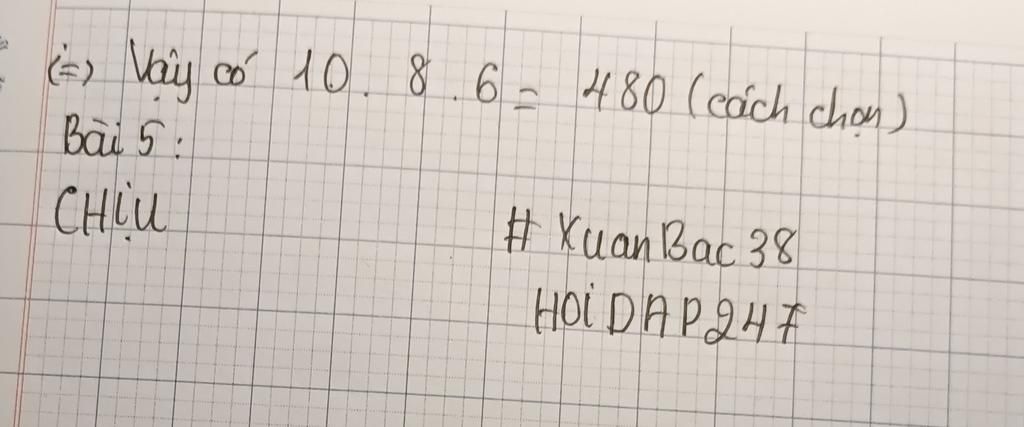 (=) Vậy có 10 . 8 . 6 = 480 (cách chọn)
Bài 5 :
CHỊU
# XuanBac38
HOIDAP247